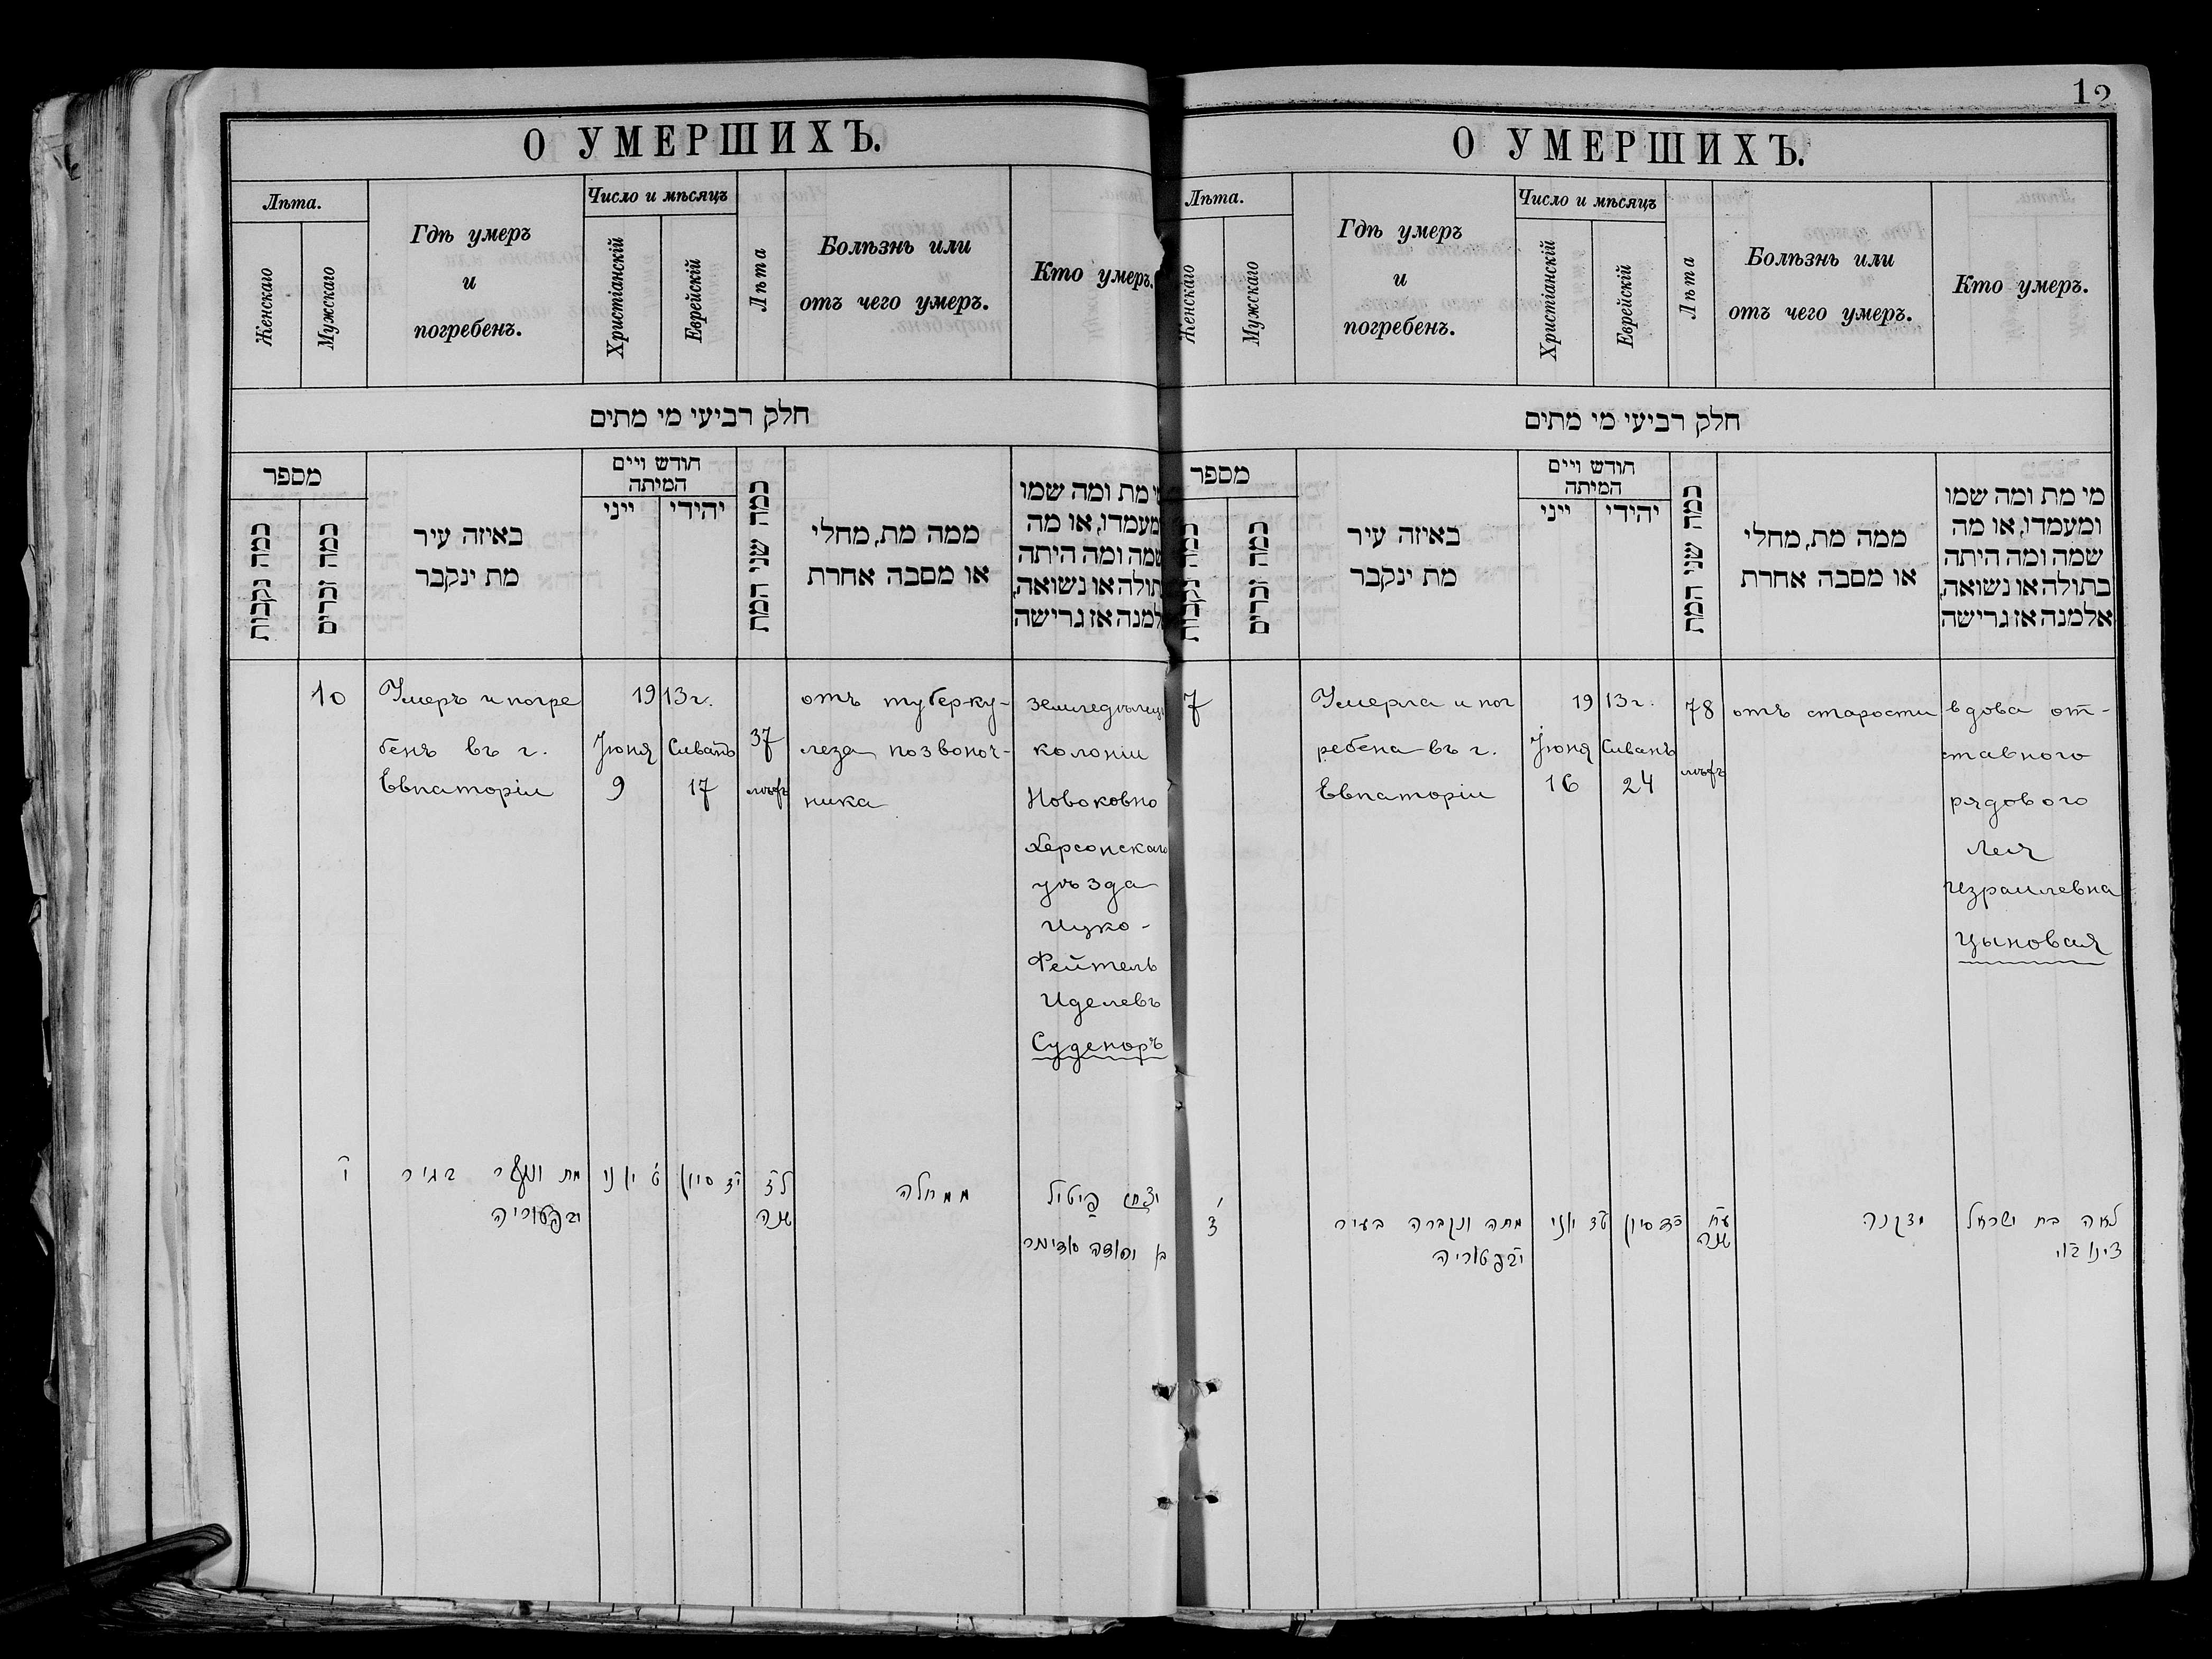 12
О УМЕРШИХЪ.
Лѣта.
Женскаго
Мужскаго
Гдѣ умеръ
и
погребенъ.
Число и мѣсяцъ
Христіанскій
Еврейскій
Лѣта
Болѣзнь или
отъ чего умеръ.
Кто умеръ.
חלק רביעי מי מתים
מספר
כמה נקבות
כמה זכרים
באיזה עיר
מת ינקבר
חודש ויים
המיתה
ייני
יהידי
כמה שני המת
ממה מת, מחלי
או מסבה אחרת
מי מת ומה שמו
ומעמדו, או מה
שמה ומה היתה
בתולה או נשואה,
אלמנה אז גרישה
10
Умеръ и погре
бенъ въ г.
Евпаторіи
1913 г.
Іюня
9
Сиванъ
17
37
лѣтъ
отъ туберку-
леза позвоноч-
ника
земледѣлецъ
колоніи
Новоковно
Херсонскаго
уѣзда
Ицко-
Фейтель
Иделевъ
Суденоръ
י
מת ונקבר בעיר
יבפטוריה
ט יוני
יז סיון
לז
שנה
ממחלה
יצחק פייטיל
בן יהודה
О УМЕРШИХЪ.
Лѣта.
Женскаго
Мужскаго
Гдѣ умеръ
и
погребенъ.
Число и мѣсяцъ
Христіанскій
Еврейскій
Лѣта
Болѣзнь или
отъ чего умеръ.
Кто умеръ.
חלק רביעי מי מתים
מספר
כמה נקבות
כמה זכרים
באיזה עיר
מת ינקבר
חודש ויים
המיתה
ייני
יהידי
כמה שני המת
ממה מת, מחלי
או מסבה אחרת
מי מת ומה שמו
ומעמדו, או מה
שמה ומה היתה
בתולה או נשואה,
אלמנה אז גרישה
7
Умерла и пог
ребена въ г.
Евпаторіи
1913 г.
Іюня
16
Сиванъ
24
78
лѣтъ
отъ старости
вдова от-
ставного
рядового
Лея
Израилевна
Цыновая
ז
מתה ונקברה בעיר
יבפטוריה
טז יוני
כד סיון
עח
שנה
מזקנה
לאה בת ישראל
צינובוי